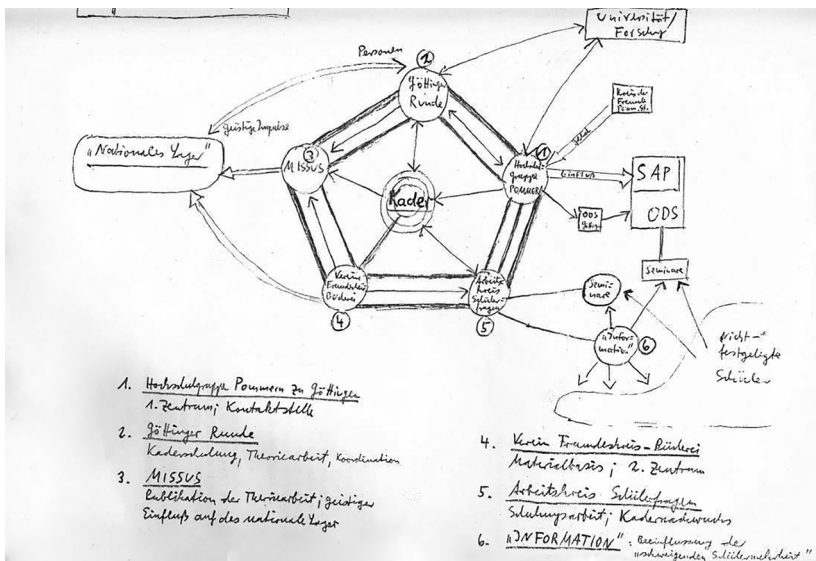 Universität/
Forschg
Personen
②
Göttinger
Runde
geistige Impulse
"Nationales Lager"
③
MISSUS
①
Hochschul-
gruppe
POMMERN
Geld
Einfluß
SAP
ODS
ODS
Kader
Seminare
Verein
Freundeskreis
Bücherei
④
Arbeits-
kreis
Schüler-
fragen
⑤
Semi-
nare
"Infor-
mation"
⑥
Nicht-
festgelegte
Schüler
1. Hochschulgruppe Pommern zu Göttingen
1. Zentrum; Kontaktstelle
2. Göttinger Runde
Kaderschulung, Theoriearbeit, Koordination
3. MISSUS
Publikation der Theoriearbeit; geistiger
Einfluß auf das nationale Lager
4. Verein Freundeskreis-Bücherei
Materialbasis; 2. Zentrum
5. Arbeitskreis Schülerfragen
Schulungsarbeit; Kadernachwuchs
6. "INFORMATION": Beeinflussung der
"schweigenden Schülermehrheit"